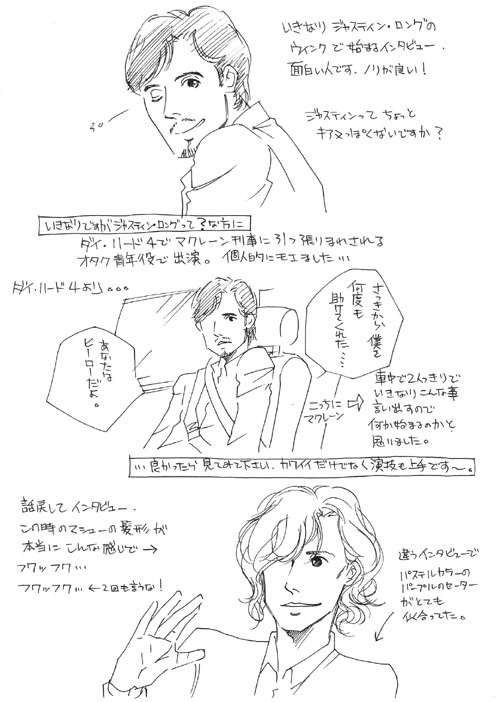 いきなり ジャスティン・ロングの
ウィンクで始まるインタビュー.
面白い人です、ノリが良い！
ジャスティンって ちょっと
キアヌっぽくないですか？
いきなりですがジャスティン・ロングって？な方に
ダイ・ハード4で マクレーン刑事に引っ張りまわされる
オタク青年役で出演。個人的にモエました…
ダイ・ハード4より。。。
さっきから僕を
何度も
助けてくれた…
あなたは
ヒーローだよ。
車中で2人っきりで
いきなりこんな事
言い出すので
何か始まるのかと
思いました。
こっちに
マクレーン
…良かったら見てみて下さい.カワイイだけでなく演技も上手です〜。
話戻してインタビュー.
この時のマシューの髪形が
本当にこんな感じで→
フワッフワ…
フワッフワ…←2回も言うな！
違うインタビューで
パステルカラーの
パープルのセーター
がとても
似合ってた。